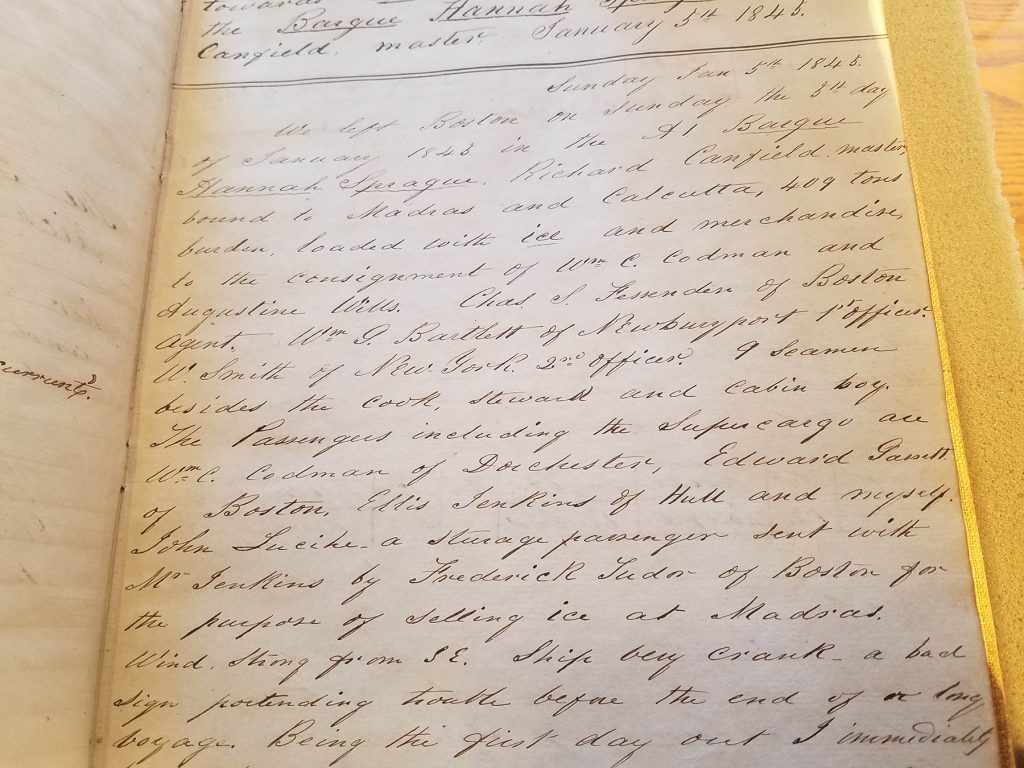 towards
the Barque Hannah
Canfield. master. January 5th 1845.
Sunday Jan 5th 1845.
We left Boston on Sunday the 5th day
of January 1845 in the A1 Barque
Hannah Sprague, Richard Canfield. master,
bound to Madras and Calcutta, 409 tons
burden, loaded with ice and merchandise,
to the consignment of Wm C. Codman and
Augustine Wills. Chas S. Fessenden of Boston
Agent. Wm G. Bartlett of Newburyport 1st officer.
W. Smith of New York 2nd officer. 9 Seamen
besides the cook, steward and cabin boy.
The Passengers including the Supercargo are
Wm C. Codman of Dorchester, Edward Garrett
of Boston, Ellis Jenkins of Hull and myself.
John a sturage passenger sent with
Mr Jenkins by Frederick Tudor of Boston for
the purpose of selling ice at Madras.
Wind. strong from S E. Ship very crank - a bad
sign portending trouble before the end of long
voyage. Being the first day out I immediately